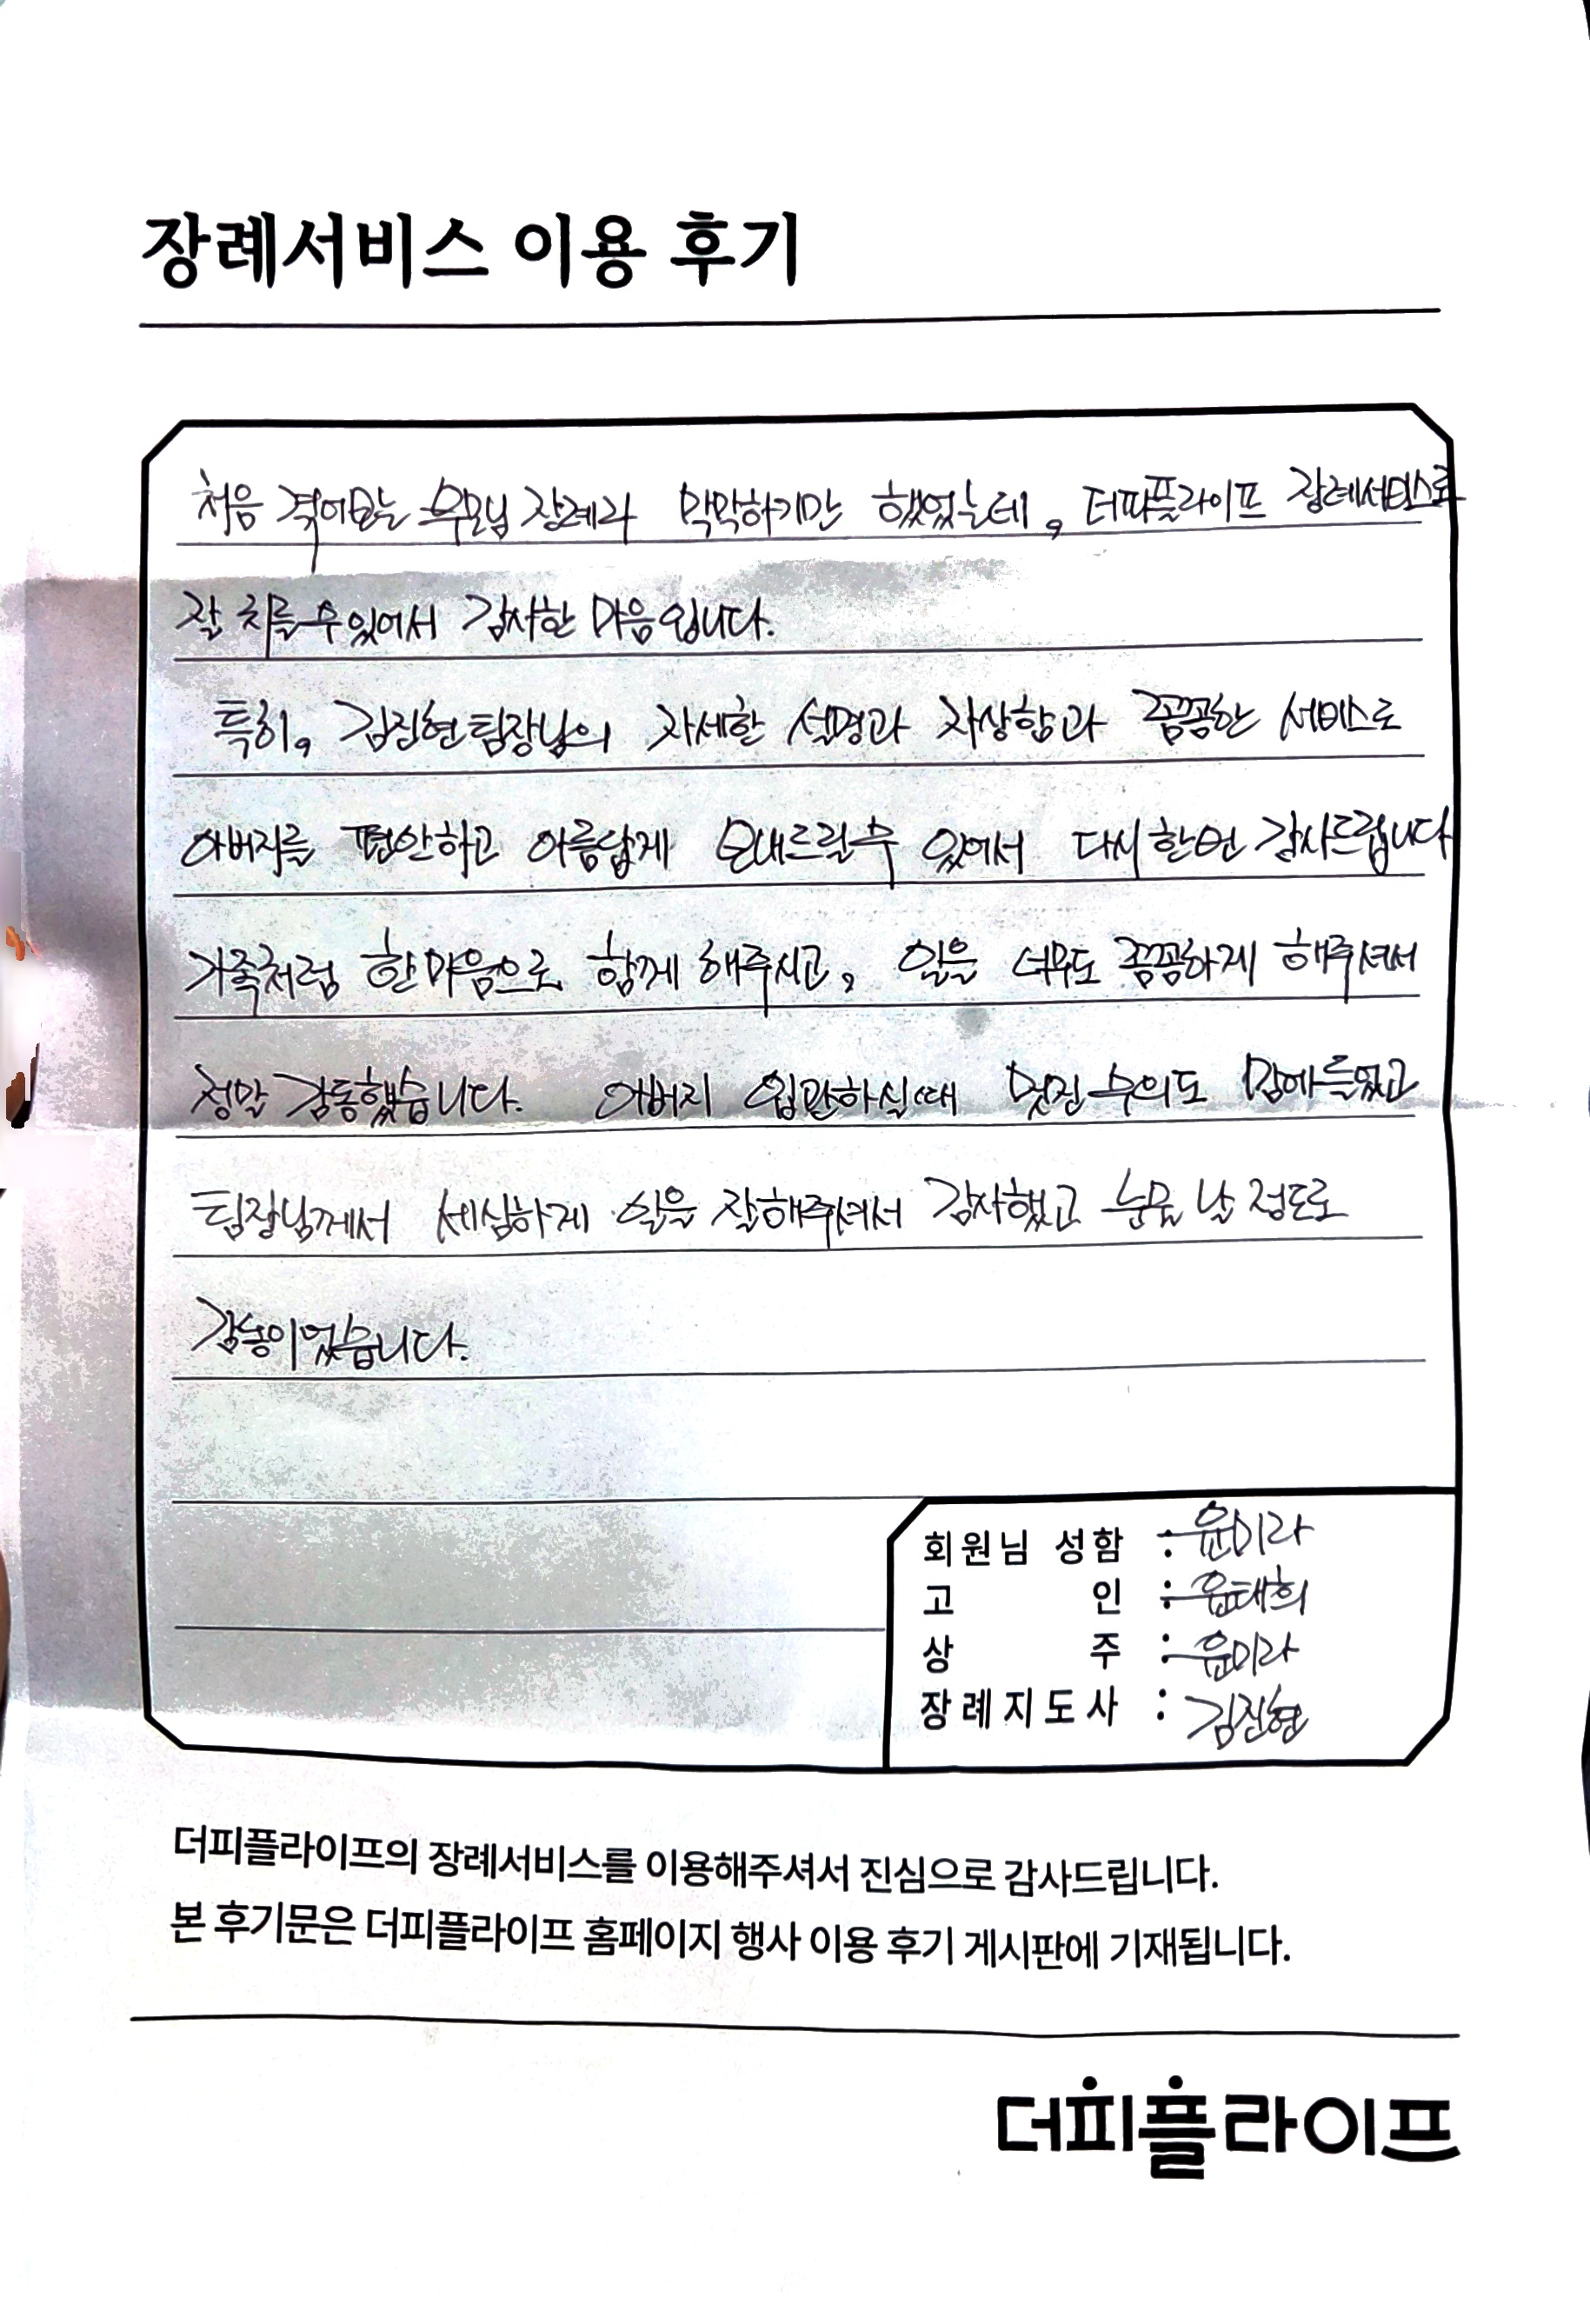 장례서비스 이용 후기
처음 겪어보는 부모님 장례라 막막하기만 했었는데, 더피플라이프 장례서비스로
잘 치를수있어서 감사한 마음입니다.
특히, 김진현팀장님의 자세한 설명과 자상함과 꼼꼼한 서비스로
아버지를 편안하고 아름답게 보내드릴수 있어서 다시한번 감사드립니다
가족처럼 한마음으로 함께 해주시고, 일을 너무도 꼼꼼하게 해주셔서
정말 감동했습니다. 아버지 입관하실때 멋진수의도 맘에들었고
팀장님께서 세심하게 일을 잘해주셔서 감사했고 눈물 날 정도로
감동이었습니다.
회원님 성함 : 윤미라
고 인 : 윤태희
상 주 : 윤미라
장례지도사 : 김진현
더피플라이프의 장례서비스를 이용해주셔서 진심으로 감사드립니다.
본 후기문은 더피플라이프 홈페이지 행사 이용 후기 게시판에 기재됩니다.
더피플라이프